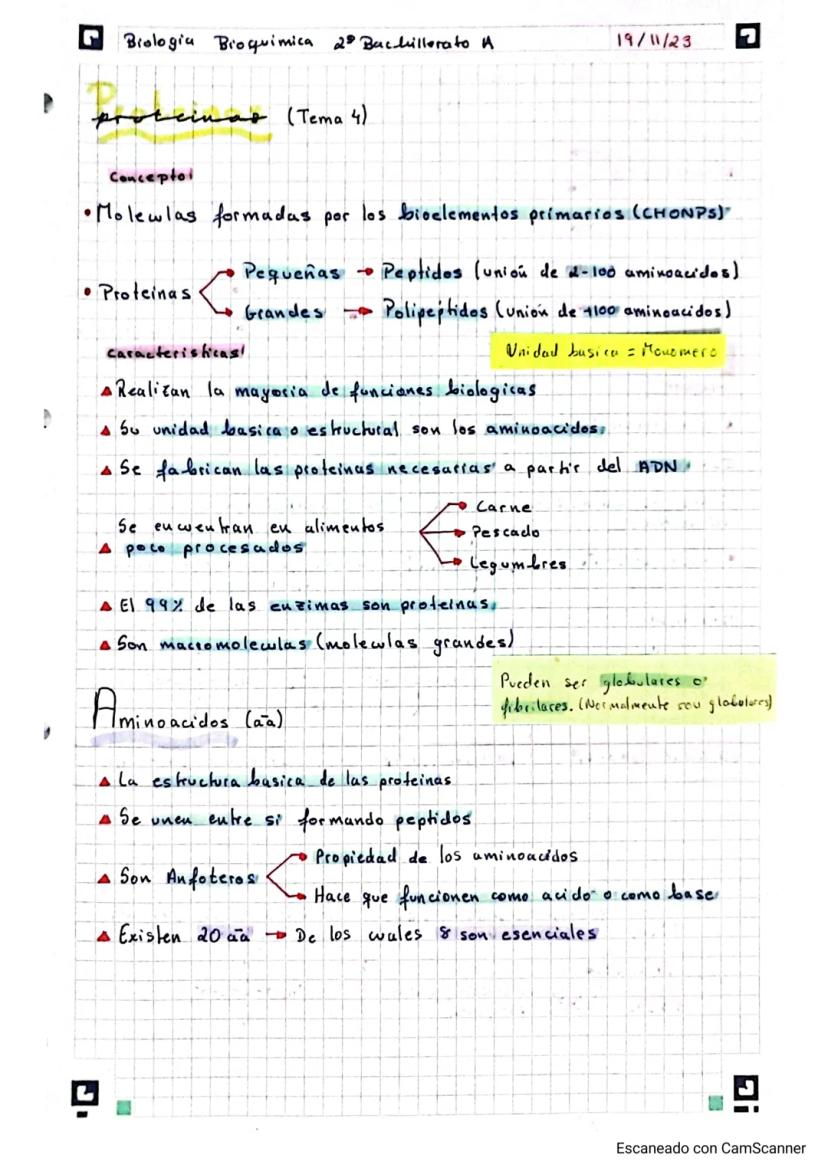 Biología Bioquimica 2º Bachillerato A 19/11/23
Proteinas (Tema 4)
Concepto:
• Moleculas formadas por los bioelementos primarios (CHONPS)
• Proteinas
Pequeñas → Peptidos (unión de 2-100 aminoacidos)
Grandes → Polipeptidos (unión de +100 aminoacidos)
Caracteristicas:
Unidad basica = Monomero
▲ Realizan la mayoria de funciones biologicas
▲ Su unidad basica o estructural son los aminoacidos.
▲ Se fabrican las proteinas necesarias a partir del ADN
Se encuentran en alimentos
▲ poco procesados
Carne
Pescado
Legumbres
▲ El 99% de las enzimas son proteinas.
▲ Son macromoleculas (moleculas grandes)
Pueden ser globulares o
fibrilares. (Normalmente son globulares)
Aminoacidos (aa)
▲ La estructura basica de las proteinas
▲ Se unen entre si formando peptidos
▲ Son Anfoteros
Propiedad de los aminoacidos
Hace que funcionen como acido o como base
▲ Existen 20 aa → De los cuales 8 son esenciales
Escaneado con CamScanner